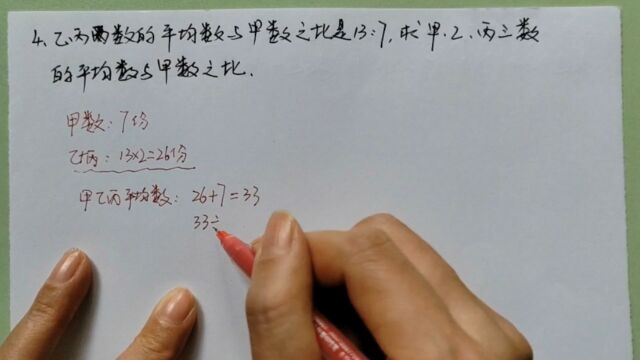 4.乙丙两数的平均数与甲数之比是13:7,求甲.乙.丙三数
的平均数与甲数之比.
甲数:7份
乙+丙:13×2=26份
甲乙丙平均数:26+7=33
33÷